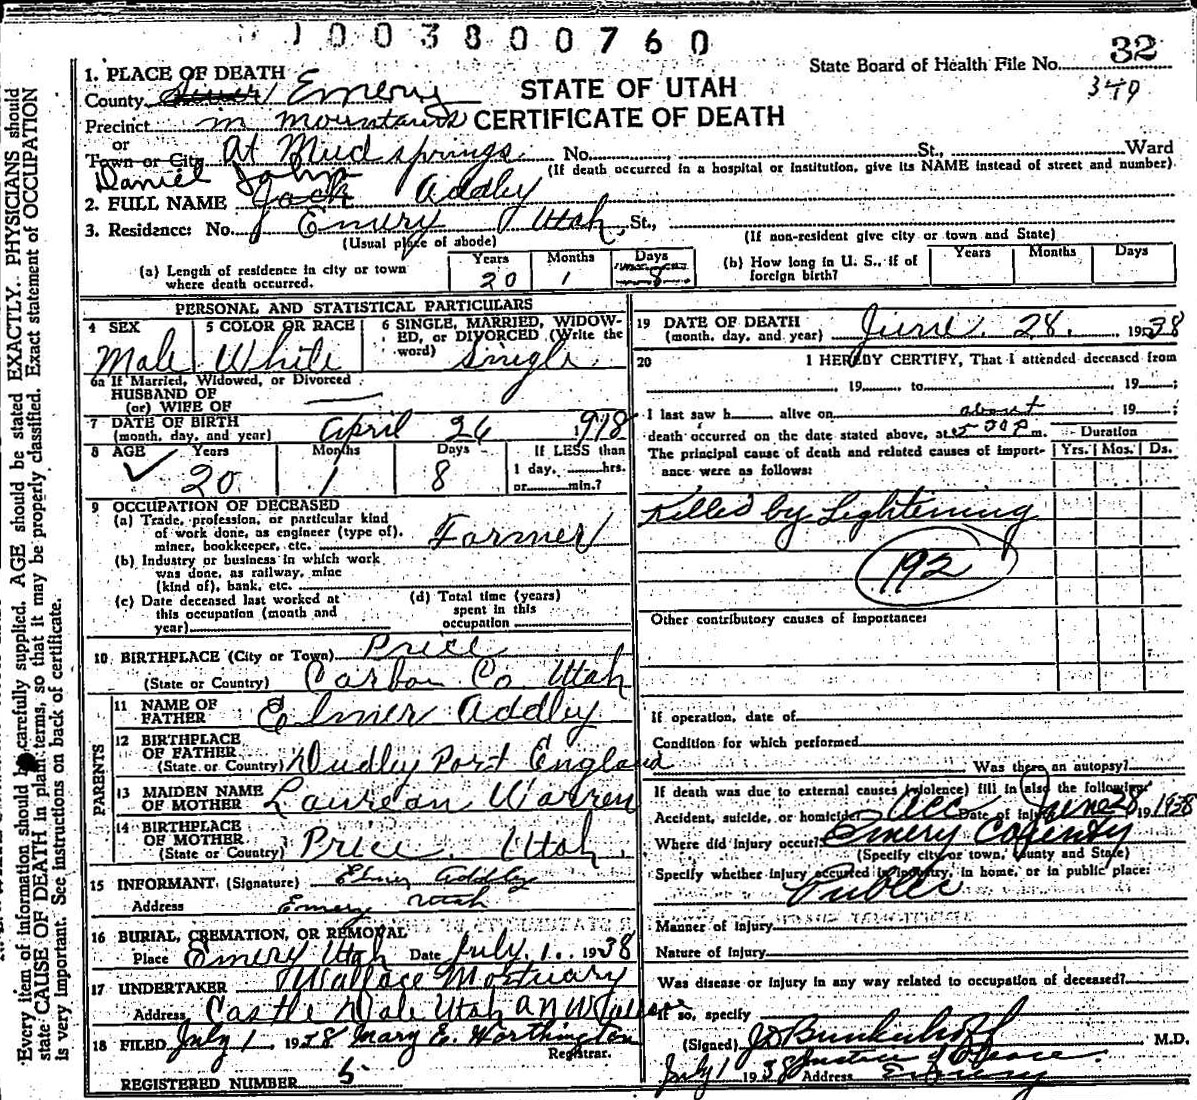 1003800760
State Board of Health File No. 32
349
1. PLACE OF DEATH
County Emery
STATE OF UTAH
Precinct in mountains
CERTIFICATE OF DEATH
or
Town or City At Mud springs No. St., Ward
(If death occurred in a hospital or institution, give its NAME instead of street and number)
Daniel John
2. FULL NAME Jack Addley
3. Residence: No. Emery Utah, St.,
(Usual place of abode)
(If non-resident give city or town and State)
(a) Length of residence in city or town where death occurred.
Years 20 Months 1 Days 8
(b) How long in U. S., if of foreign birth?
Years Months Days
PERSONAL AND STATISTICAL PARTICULARS
4 SEX Male
5 COLOR OR RACE White
6 SINGLE, MARRIED, WIDOWED, or DIVORCED (Write the word) Single
6a If Married, Widowed, or Divorced
HUSBAND OF
(or) WIFE OF
7 DATE OF BIRTH
(month, day, and year) April 26 918
8 AGE Years 20 Months 1 Days 8
If LESS than
1 day, hrs.
or min.?
9 OCCUPATION OF DECEASED
(a) Trade, profession, or particular kind
of work done, as engineer (type of),
miner, bookkeeper, etc. Farmer
(b) Industry or business in which work
was done, as railway, mine
(kind of), bank, etc.
(c) Date deceased last worked at
this occupation (month and
year)
(d) Total time (years)
spent in this
occupation
10 BIRTHPLACE (City or Town) Price
(State or Country) Carbon Co Utah
PARENTS
11 NAME OF
FATHER Elmer Addley
12 BIRTHPLACE
OF FATHER
(State or Country) Dudley Port England
13 MAIDEN NAME
OF MOTHER Laurean Warren
14 BIRTHPLACE
OF MOTHER
(State or Country) Price Utah
15 INFORMANT (Signature) Elmer Addley
Address Emery Utah
16 BURIAL, CREMATION, OR REMOVAL
Place Emery Utah Date July 1. 1938
17 UNDERTAKER Wallace Mortuary
Address Castle Dale Utah
18 FILED July 1 1938 Mary E. Worthington
Registrar.
REGISTERED NUMBER 5
19 DATE OF DEATH
(month, day, and year) June 28. 1938
20 I HEREBY CERTIFY, That I attended deceased from
19 , to , 19 ;
I last saw h alive on , 19 ;
about
death occurred on the date stated above, at m.
Duration
The principal cause of death and related causes of importance were as follows:
Yrs. Mos. Ds.
Killed by Lightening
192
Other contributory causes of importance:
If operation, date of
Condition for which performed
Was there an autopsy?
If death was due to external causes (violence) fill in also the following:
Accident, suicide, or homicide? Acc Date of injury June 28 1938
Where did injury occur? Emery County
(Specify city or town, County and State)
Specify whether injury occurred in industry, in home, or in public place:
Public
Manner of injury
Nature of injury
Was disease or injury in any way related to occupation of deceased?
If so, specify
(Signed) M.D.
Justice of Peace.
July 1 1938 Address Emery
Every item of information should be carefully supplied. AGE should be stated EXACTLY. PHYSICIANS should
state CAUSE OF DEATH in plain terms, so that it may be properly classified. Exact statement of OCCUPATION
is very important. See instructions on back of certificate.